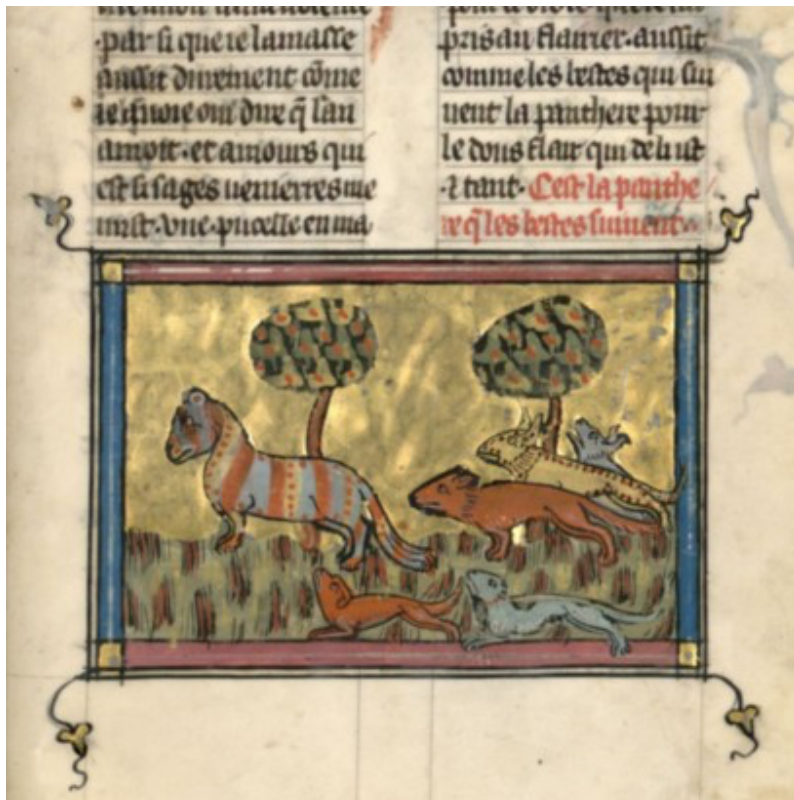 ·par si que ie lamasse
aussit durement cōme
oui dire q̃ lan
amoit·et amours qui
est si sages uenierres me
mist·vne pucelle en ma
pris au flairier·aussit
comme les bestes qui siu
uent la panthere pour
le dous flair qui de li ist
·⁊ tant·Cest la panthe
re q̃ les bestes siuuent·